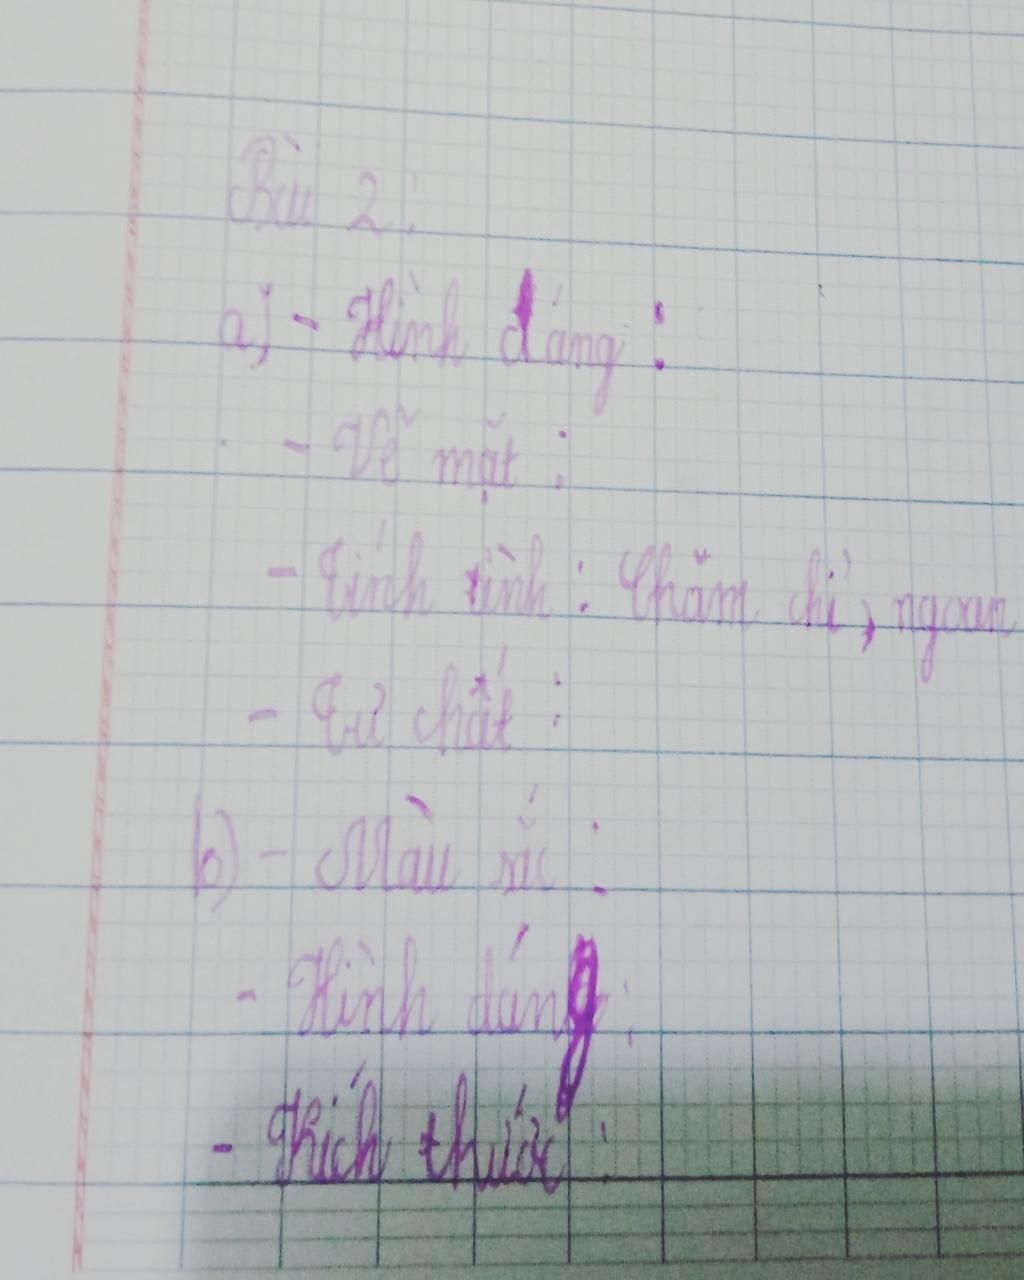 Bài 2 :
a) - Hình dáng :
- Vẽ mặt :
- Tính tình : Chăm chỉ, ngoan
- Tư chất :
b) - Màu sắc :
- Hình dáng :
- Kích thước :